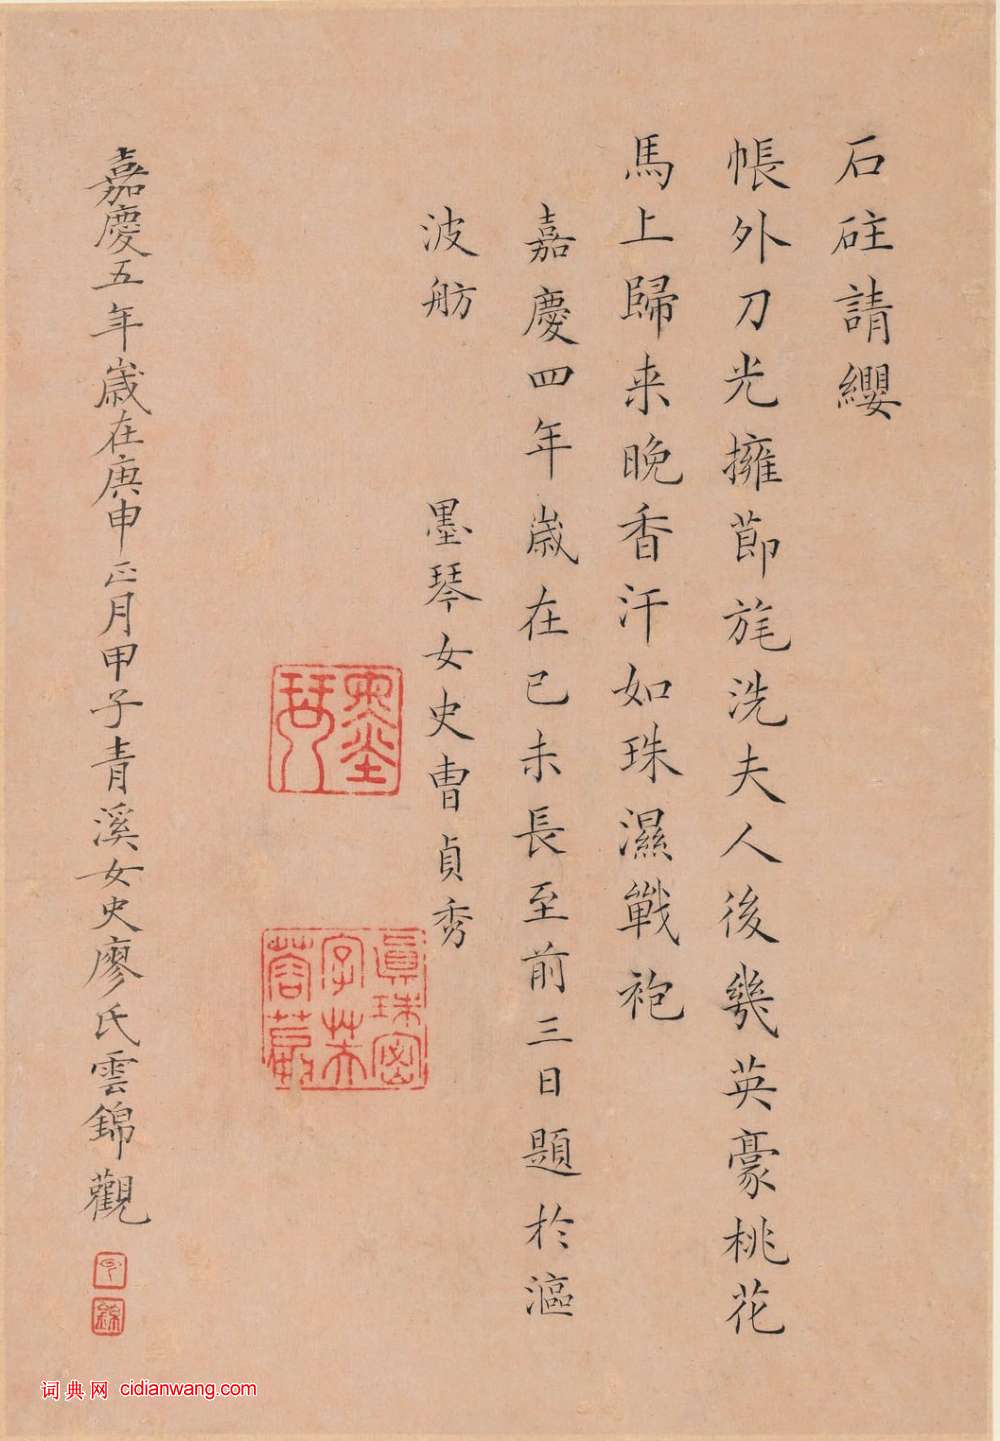 石砫請纓
帳外刀光擁節旄洗夫人後幾英豪桃花
馬上歸来晚香汗如珠濕戰袍
嘉慶四年歲在已未長至前三日題於漚
波舫
墨琴女史曹貞秀
墨琴
真珠密
字芙
蓉
嘉慶五年歲在庚申正月甲子青溪女史廖氏雲錦觀
雲
錦
词典网 cidianwang.com